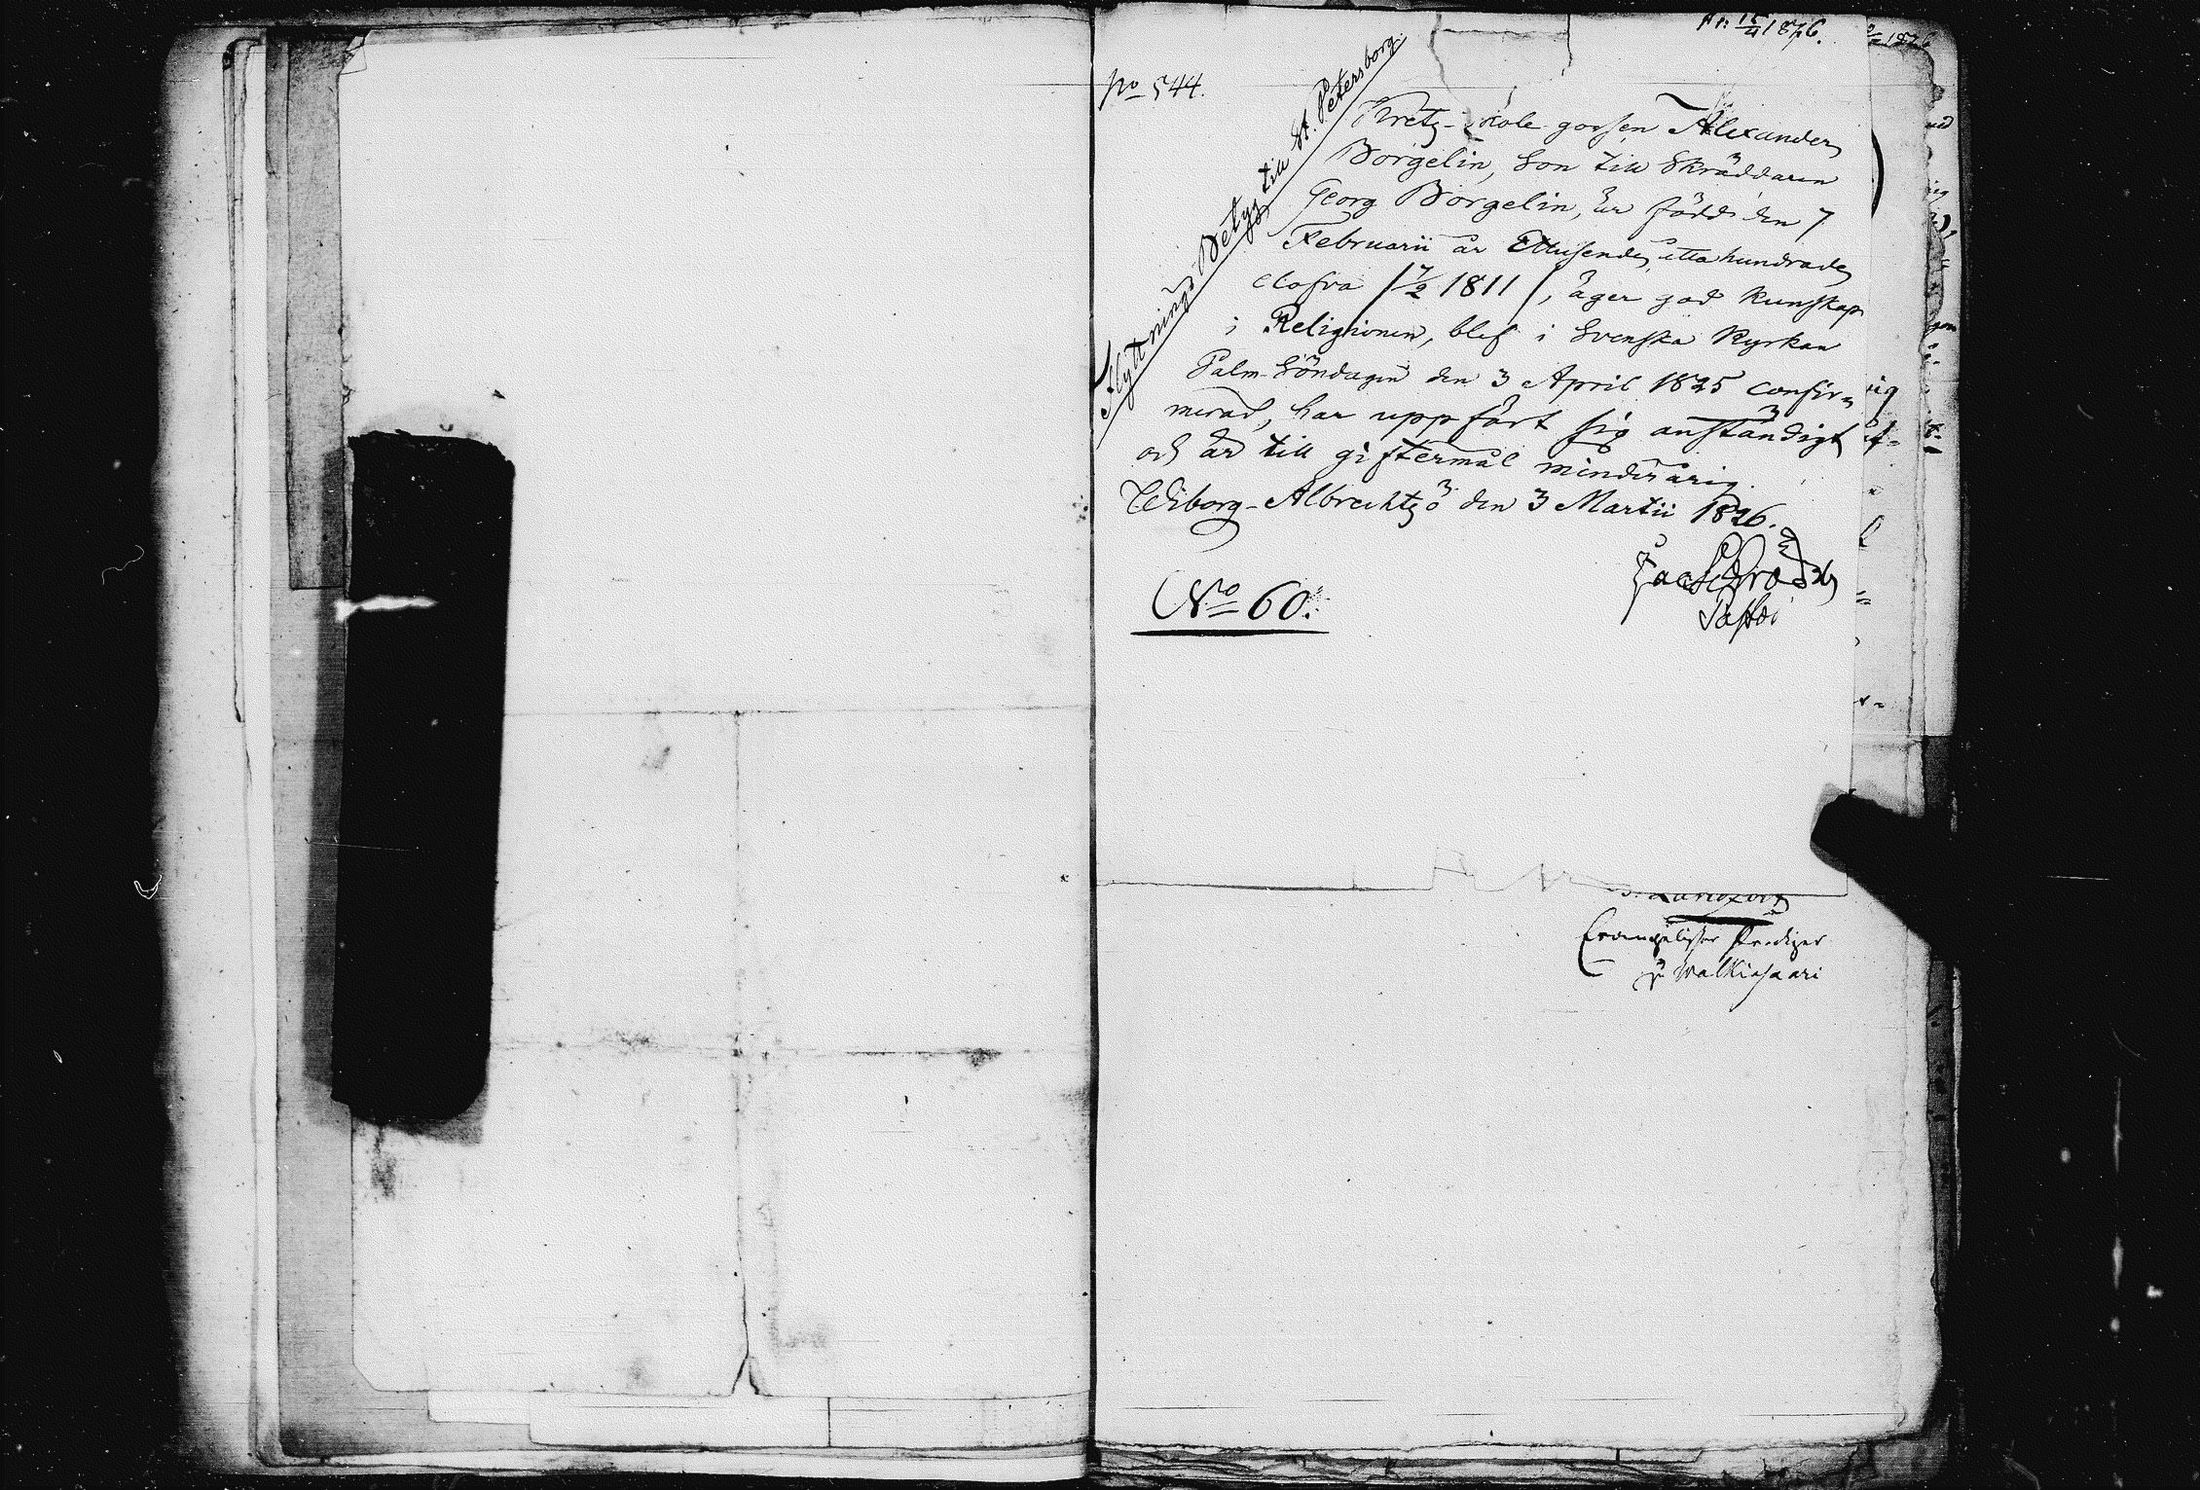 No 544.
Pr: 15/4 1826.
2/2 1826
Flyttnings Betyg till St. Petersborg.
Kretz-Skole gossen Alexander
Borgelin, Son till Skräddaren
Georg Borgelin, är född den 7
Februarii år Ettusende åttahundrade
elofva /7/2 1811/, äger god kunskap
i Religionen, blef i Svenska Kyrkan
Palm-Söndagen den 3 April 1825 confir=
merad, har uppfört sig anständigt
och är till giftermål minderårig.
Wiborg-Albrechtzö den 3 Martii 1826.
Pastor
No 60.
Evangelischer Prediger
zu Walkiasaari